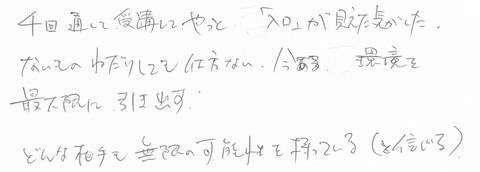 4回通して受講してやっと「入口」が見えた気がした.
ないものねだりしても仕方ない. 今ある 環境を
最大限に引き出す.
どんな相手も無限の可能性を持っている(を信じる)